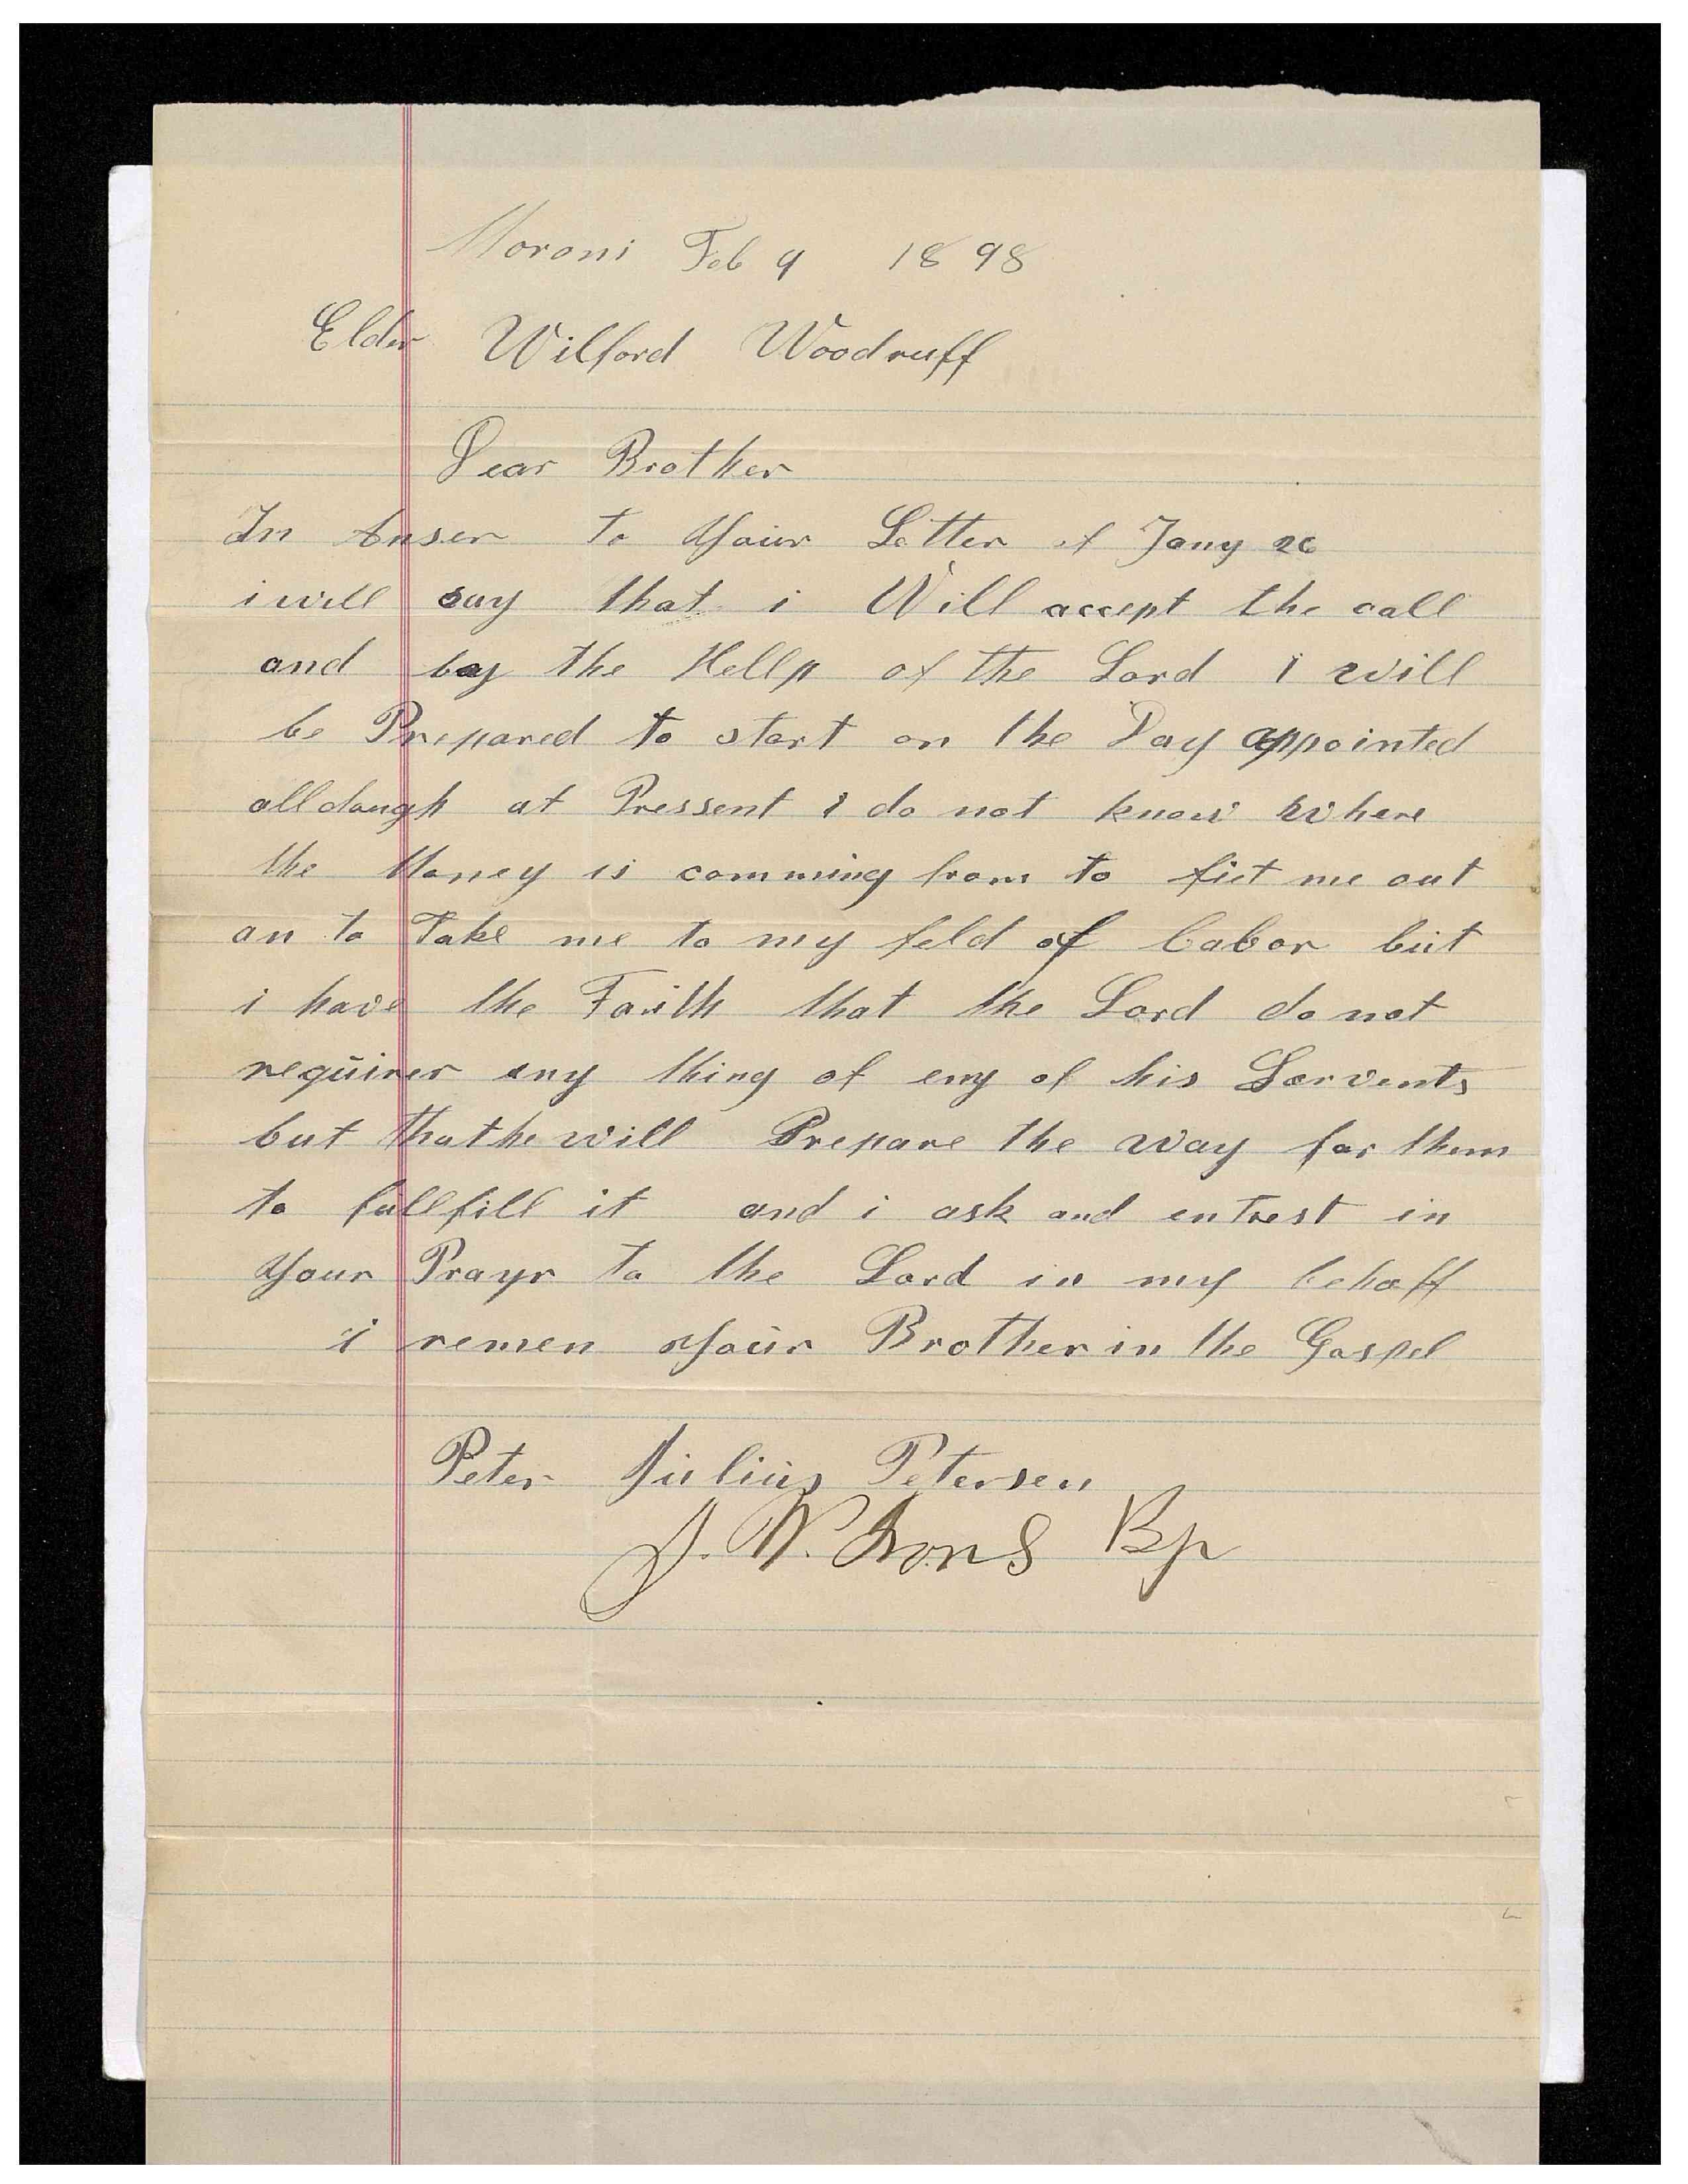 Moroni Feb 9 1898
Elder Wilford Woodruff
Dear Brother
In Anser to Your Letter of Jany 26
i will say that i Will accept the call
and by the Hellp of the Lord I will
be Prepared to start on the Day appointed
alldaugh at Pressent I do not know Where
the Money is comming from to fiet me out
an to Take me to my feld of Labor but
i have the Faith that the Lord do not
requirer any thing of eny of his Servents
but that he will Prepare the way for them
to fullfill it and i ask and entrest in
Your Prayr to the Lord in my behaff
i remen Your Brother in the Gospel
Peter Julius Petersen
J. W. Irons Bp